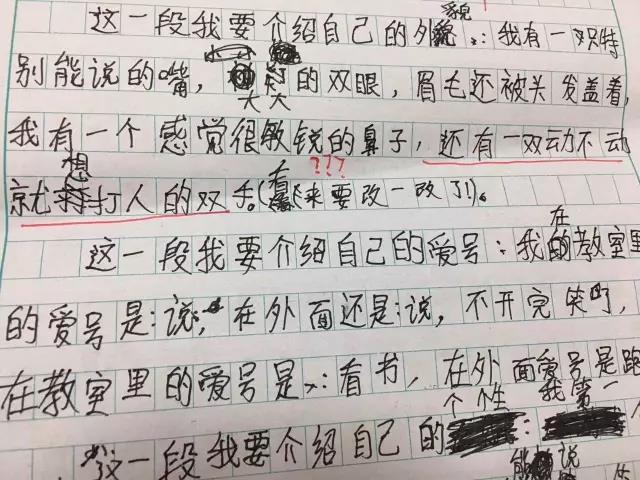 这一段我要介绍自己的外貌:我有一双特
别能说的嘴，大大的双眼，眉毛还被头发盖着，
我有一个感觉很敏锐的鼻子，还有一双动不动
???
就想打人的双手。(看来要改一改了!)。
这一段我要介绍自己的爱号:我在教室里
的爱号是:说，在外面还是:说，不开完笑叮，
在教室里的爱号是:看书，在外面爱号是跑
这一段我要介绍自己的个性:我第一
能说